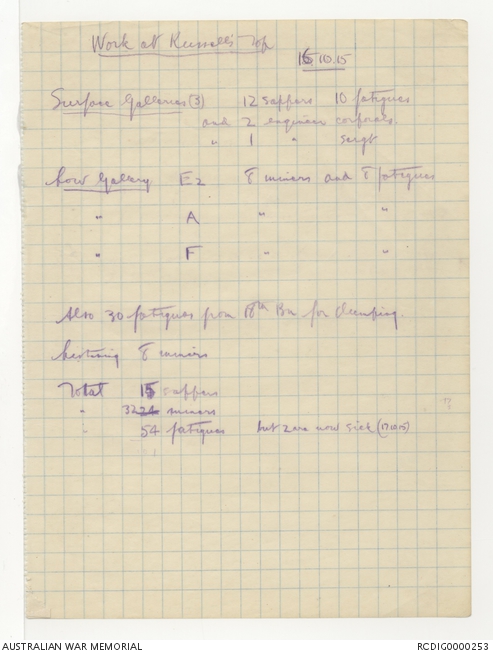 Work at Russell's Top
16.10.15
Surface Galleries (3) 12 sappers 10 fatigues
and 2 engineer corporals.
" 1 " sergt
Low Gallery E2 8 miners and 8 fatigues
" A " "
" F " "
Also 30 fatigues from 18th Bn for dumping.
8 miners
Total 15 sappers
" 32 24 miners
" 54 fatigues but 2 are now sick (17.10.15)
AUSTRALIAN WAR MEMORIAL RCDIG0000253